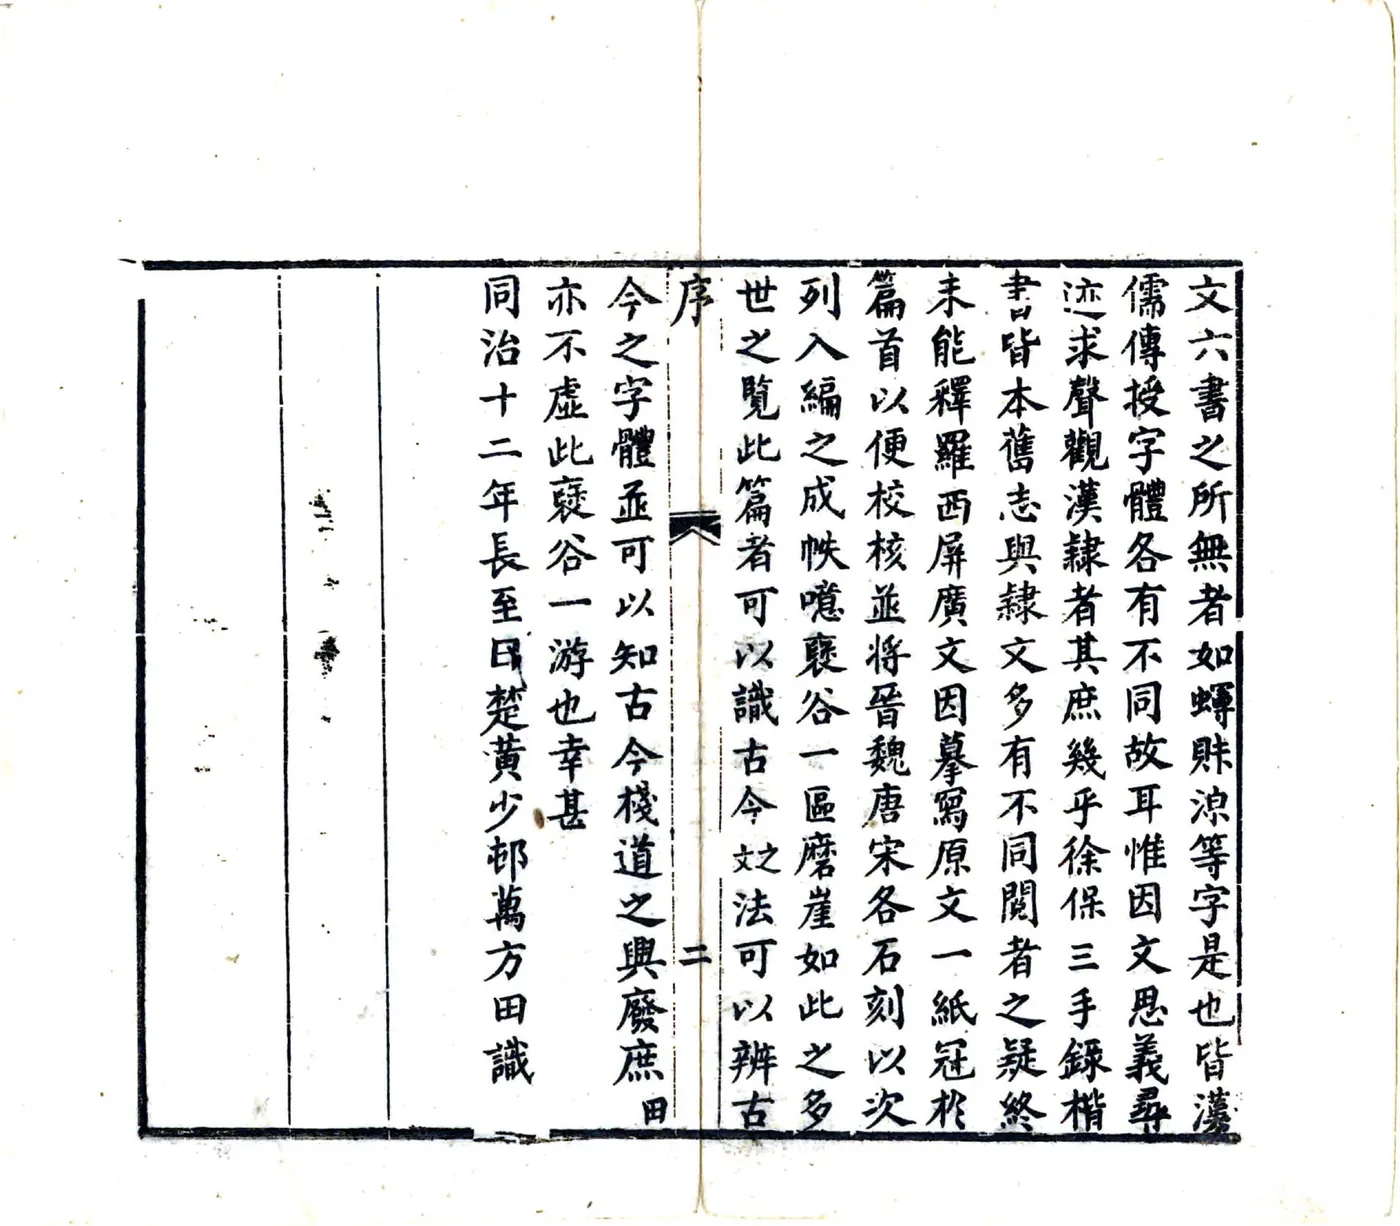 文六書之所無者如蟫䝼㵌等字是也皆漢
儒傳授字體各有不同故耳惟因文思義尋
迹求聲觀漢隸者其庶幾乎徐保三手錄楷
書皆本舊志與隸文多有不同閱者之疑終
未能釋羅西屏廣文因摹寫原文一紙冠於
篇首以便校核並將晉魏唐宋各石刻以次
列入編之成帙噫襃谷一區磨崖如此之多
世之覽此篇者可以識古今文之法可以辨古
序
二
今之字體並可以知古今棧道之興廢庶田
亦不虛此襃谷一游也幸甚
同治十二年長至日楚黃少邨萬方田識